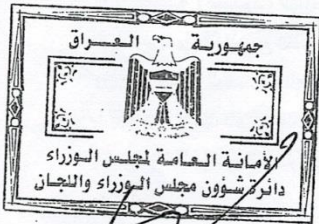 جمهورية العراق
الأمانة العامة لمجلس الوزراء
دائرة شؤون مجلس الوزراء واللجان